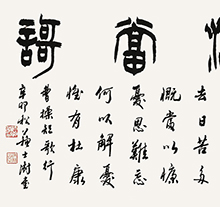 當謌
去日苦多
慨當以慷
憂思難忘
何以解憂
惟有杜康
曹操短歌行
辛卯秋蘇士澍書